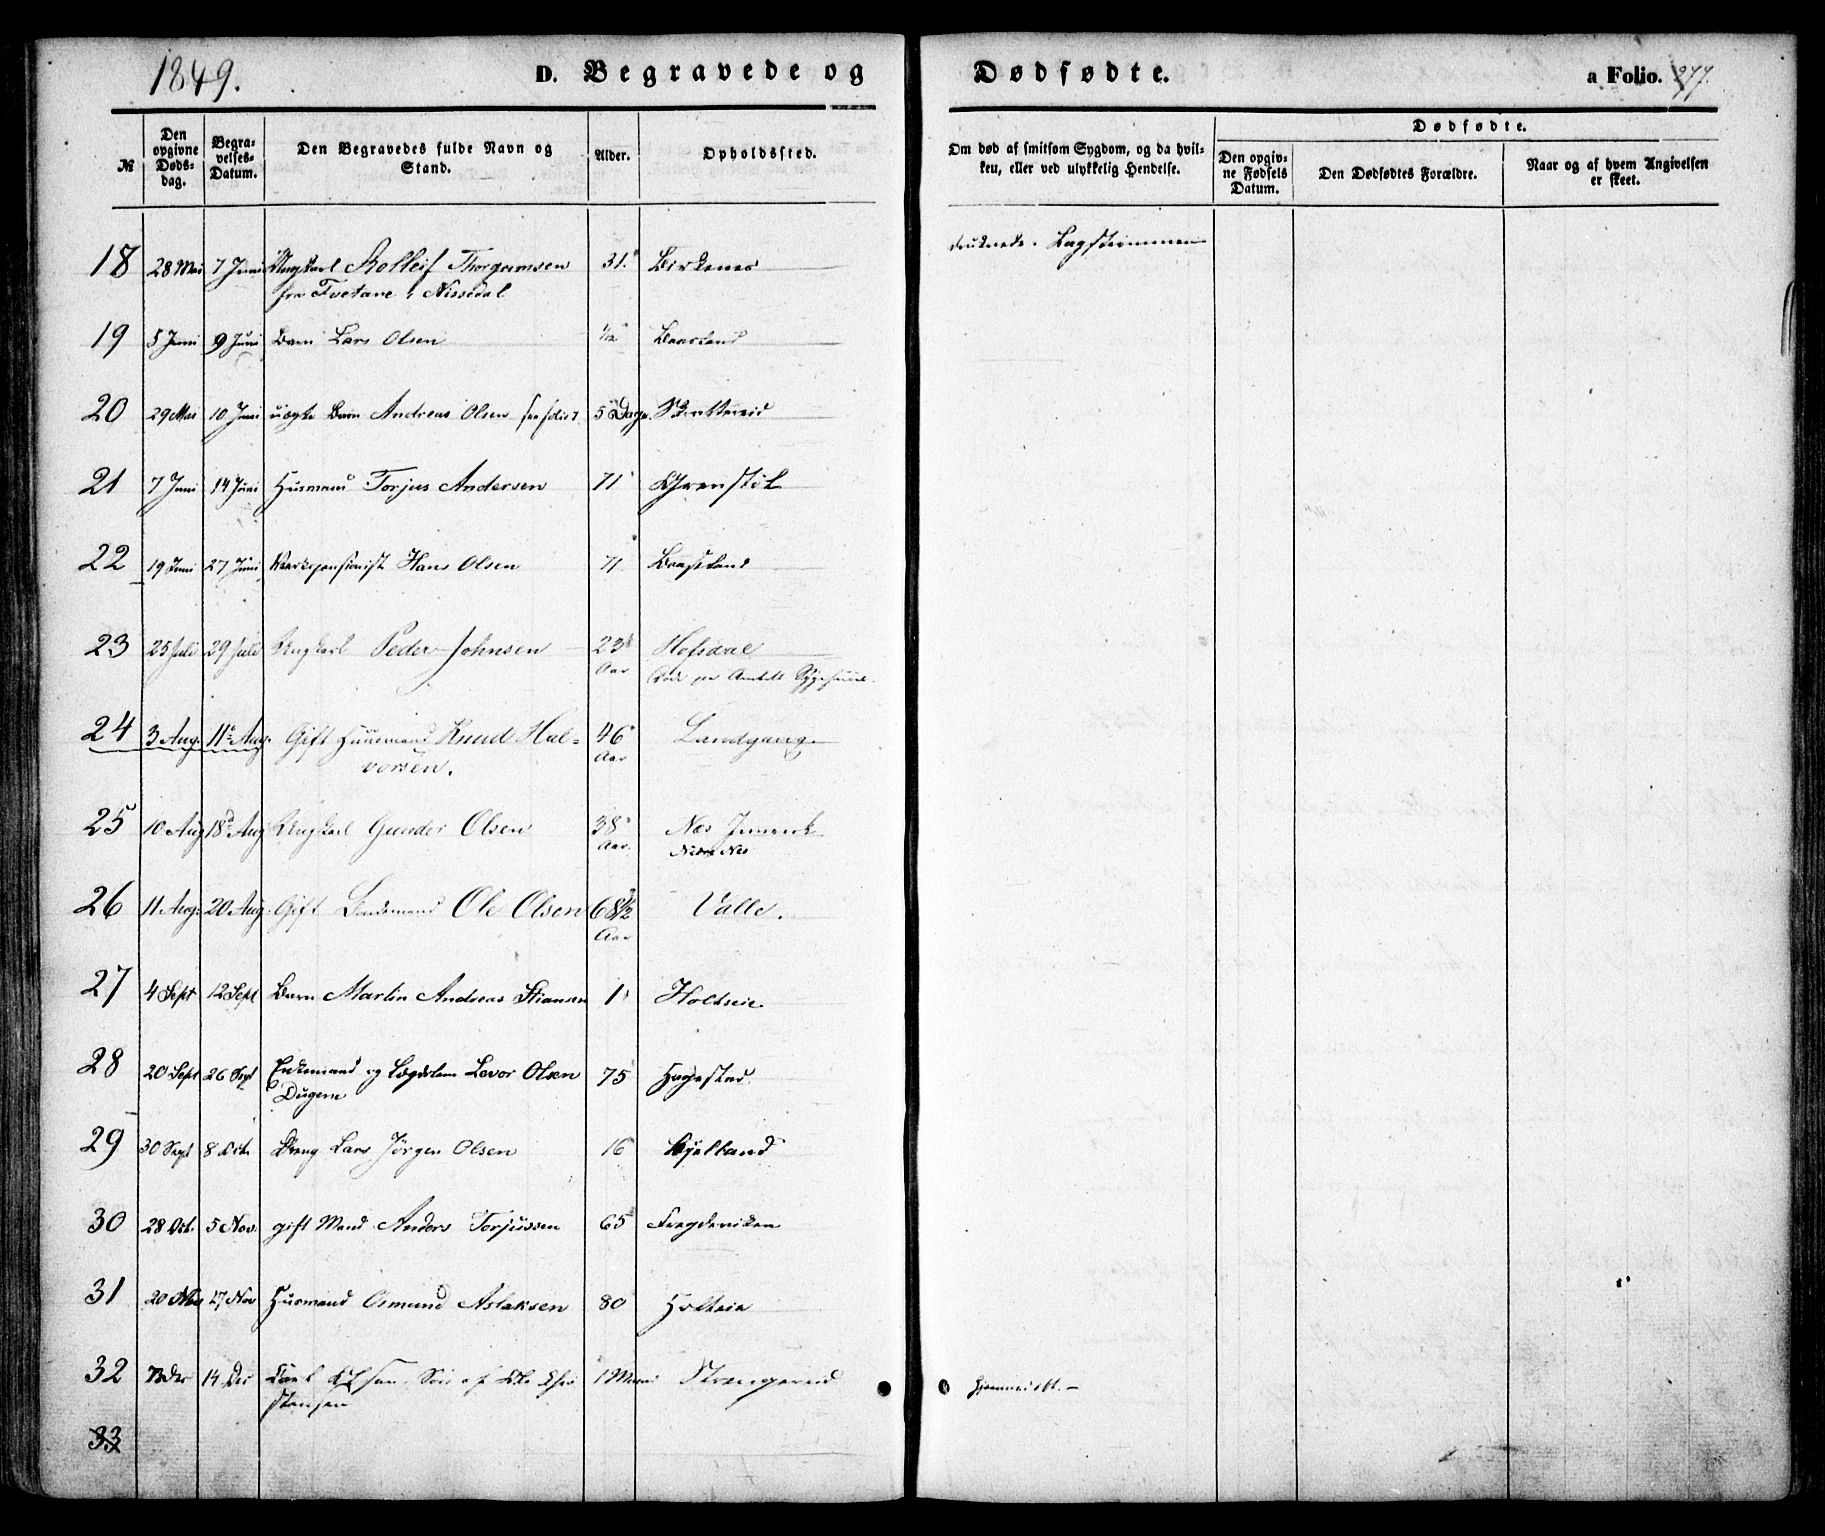 1849. D. Begravede og Dødfødte. a Folio. 277.
№ Den opgivne Dødsdag. Begravelses-Datum. Den Begravedes fulde Navn og Stand. Alder. Opholdssted. Om død af smitsom Sygdom, og da hvilken, eller ved ulykkelig Hendelse. Dødfødte. Den opgivne Fødsels Datum. Den Dødfødtes Forældre. Naar og af hvem Angivelsen er skeet.
18 28 Mai 7 Juni Ungkarl Rolleif Thorgrimsen 31. Birkenes druknede i
fra Tvetane i Nissedal
19 5 Juni 9 Juni Barn Lars Olsen 1/12
20 29 Mai 10 Juni uægte Barn Andreas Olsen 5 Dage
21 7 Juni 14 Juni Husmand Torjus Andersen 71
22 19 Juni 27 Juni Hans Olsen 71
23 25 Juli 29 Juli Ungkarl Peder Johnsen 23 Hofsdal
Aar
24 3 Aug. 11 Aug. Gift Huusmand Knud Hal- 46 Landgang
vorsen. Aar
25 10 Aug 18 Aug Ungkarl Gunder Olsen 38 Nes Jernverk
Aar. Nedre Nes
26 11 Aug. 20 Aug. Gift Ole Olsen 68 1/2 Valle.
Aar
27 4 Sept 12 Sept Barn Martin Andreas Stiansen 1 Holteie
28 20 Sept 26 Sept Enkemand og Lægdslem Levor Olsen 75 Hagestad
Dugem
29 30 Sept 8 Oct. Dreng Lars Jörgen Olsen 16 Kjelland
30 28 Oct. 5 Nov. gift Mand Anders Torjussen 65
31 20 17 Nov Husmand Osmund Aslaksen 80 Holteie
32 14 Dec Søn af Ole 1 Maan Strengereid hjemmedöbt. –
33